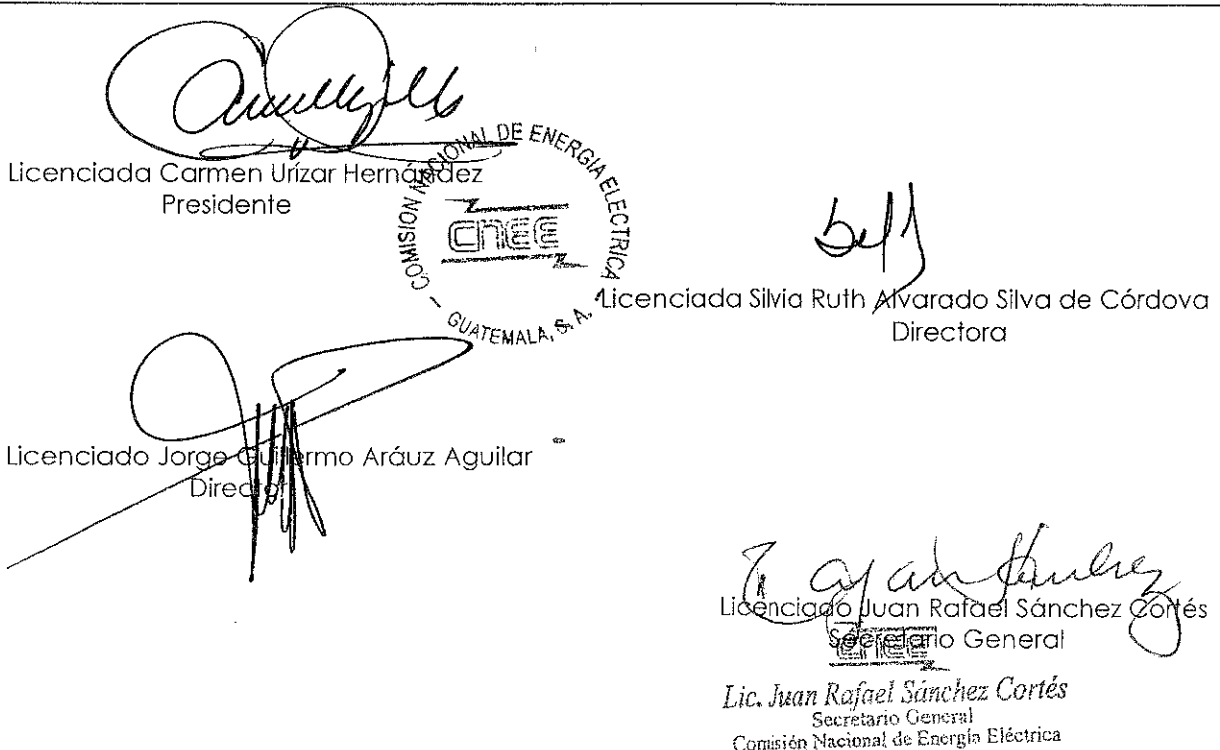 Licenciada Carmen Urízar Hernández
Presidente
COMISION NACIONAL DE ENERGIA ELECTRICA
CNEE
GUATEMALA, S. A.
Licenciada Silvia Ruth Alvarado Silva de Córdova
Directora
Licenciado Jorge Guillermo Aráuz Aguilar
Director
Licenciado Juan Rafael Sánchez Cortés
Secretario General
CNEE
Lic. Juan Rafael Sánchez Cortés
Secretario General
Comisión Nacional de Energía Eléctrica